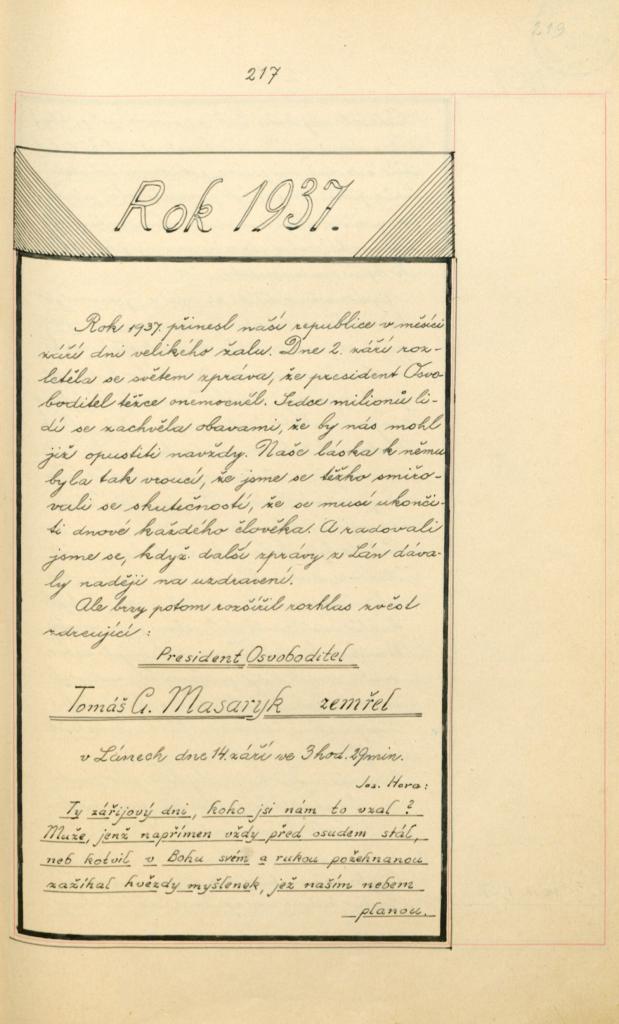 219
217
Rok 1937.
Rok 1937. přinesl naší republice v měsíci
září dni velikého žalu. Dne 2. září roz-
letěla se světem zpráva, že president Osvo-
boditel těžce onemocněl. Srdce milionů li-
dí se zachvěla obavami, že by nás mohl
již opustiti navždy. Naše láska k němu
byla tak vroucí, že jsme se těžko smiřo-
vali se skutečností, že se musí ukonči-
ti dnové každého člověka. A radovali
jsme se, když další zprávy z Lán dáva-
ly naději na uzdravení.
Ale brzy potom rozšířil rozhlas zvěst
zdrcující:
President Osvoboditel
Tomáš G. Masaryk zemřel
v Lánech dne 14. září ve 3 hod. 29 min.
Jos. Hora:
Ty zářijový dni, koho jsi nám to vzal?
Muže, jenž napřímen vždy před osudem stál,
neb kotvil v Bohu svém a rukou požehnanou
zažíhal hvězdy myšlenek, jež naším nebem
planou.